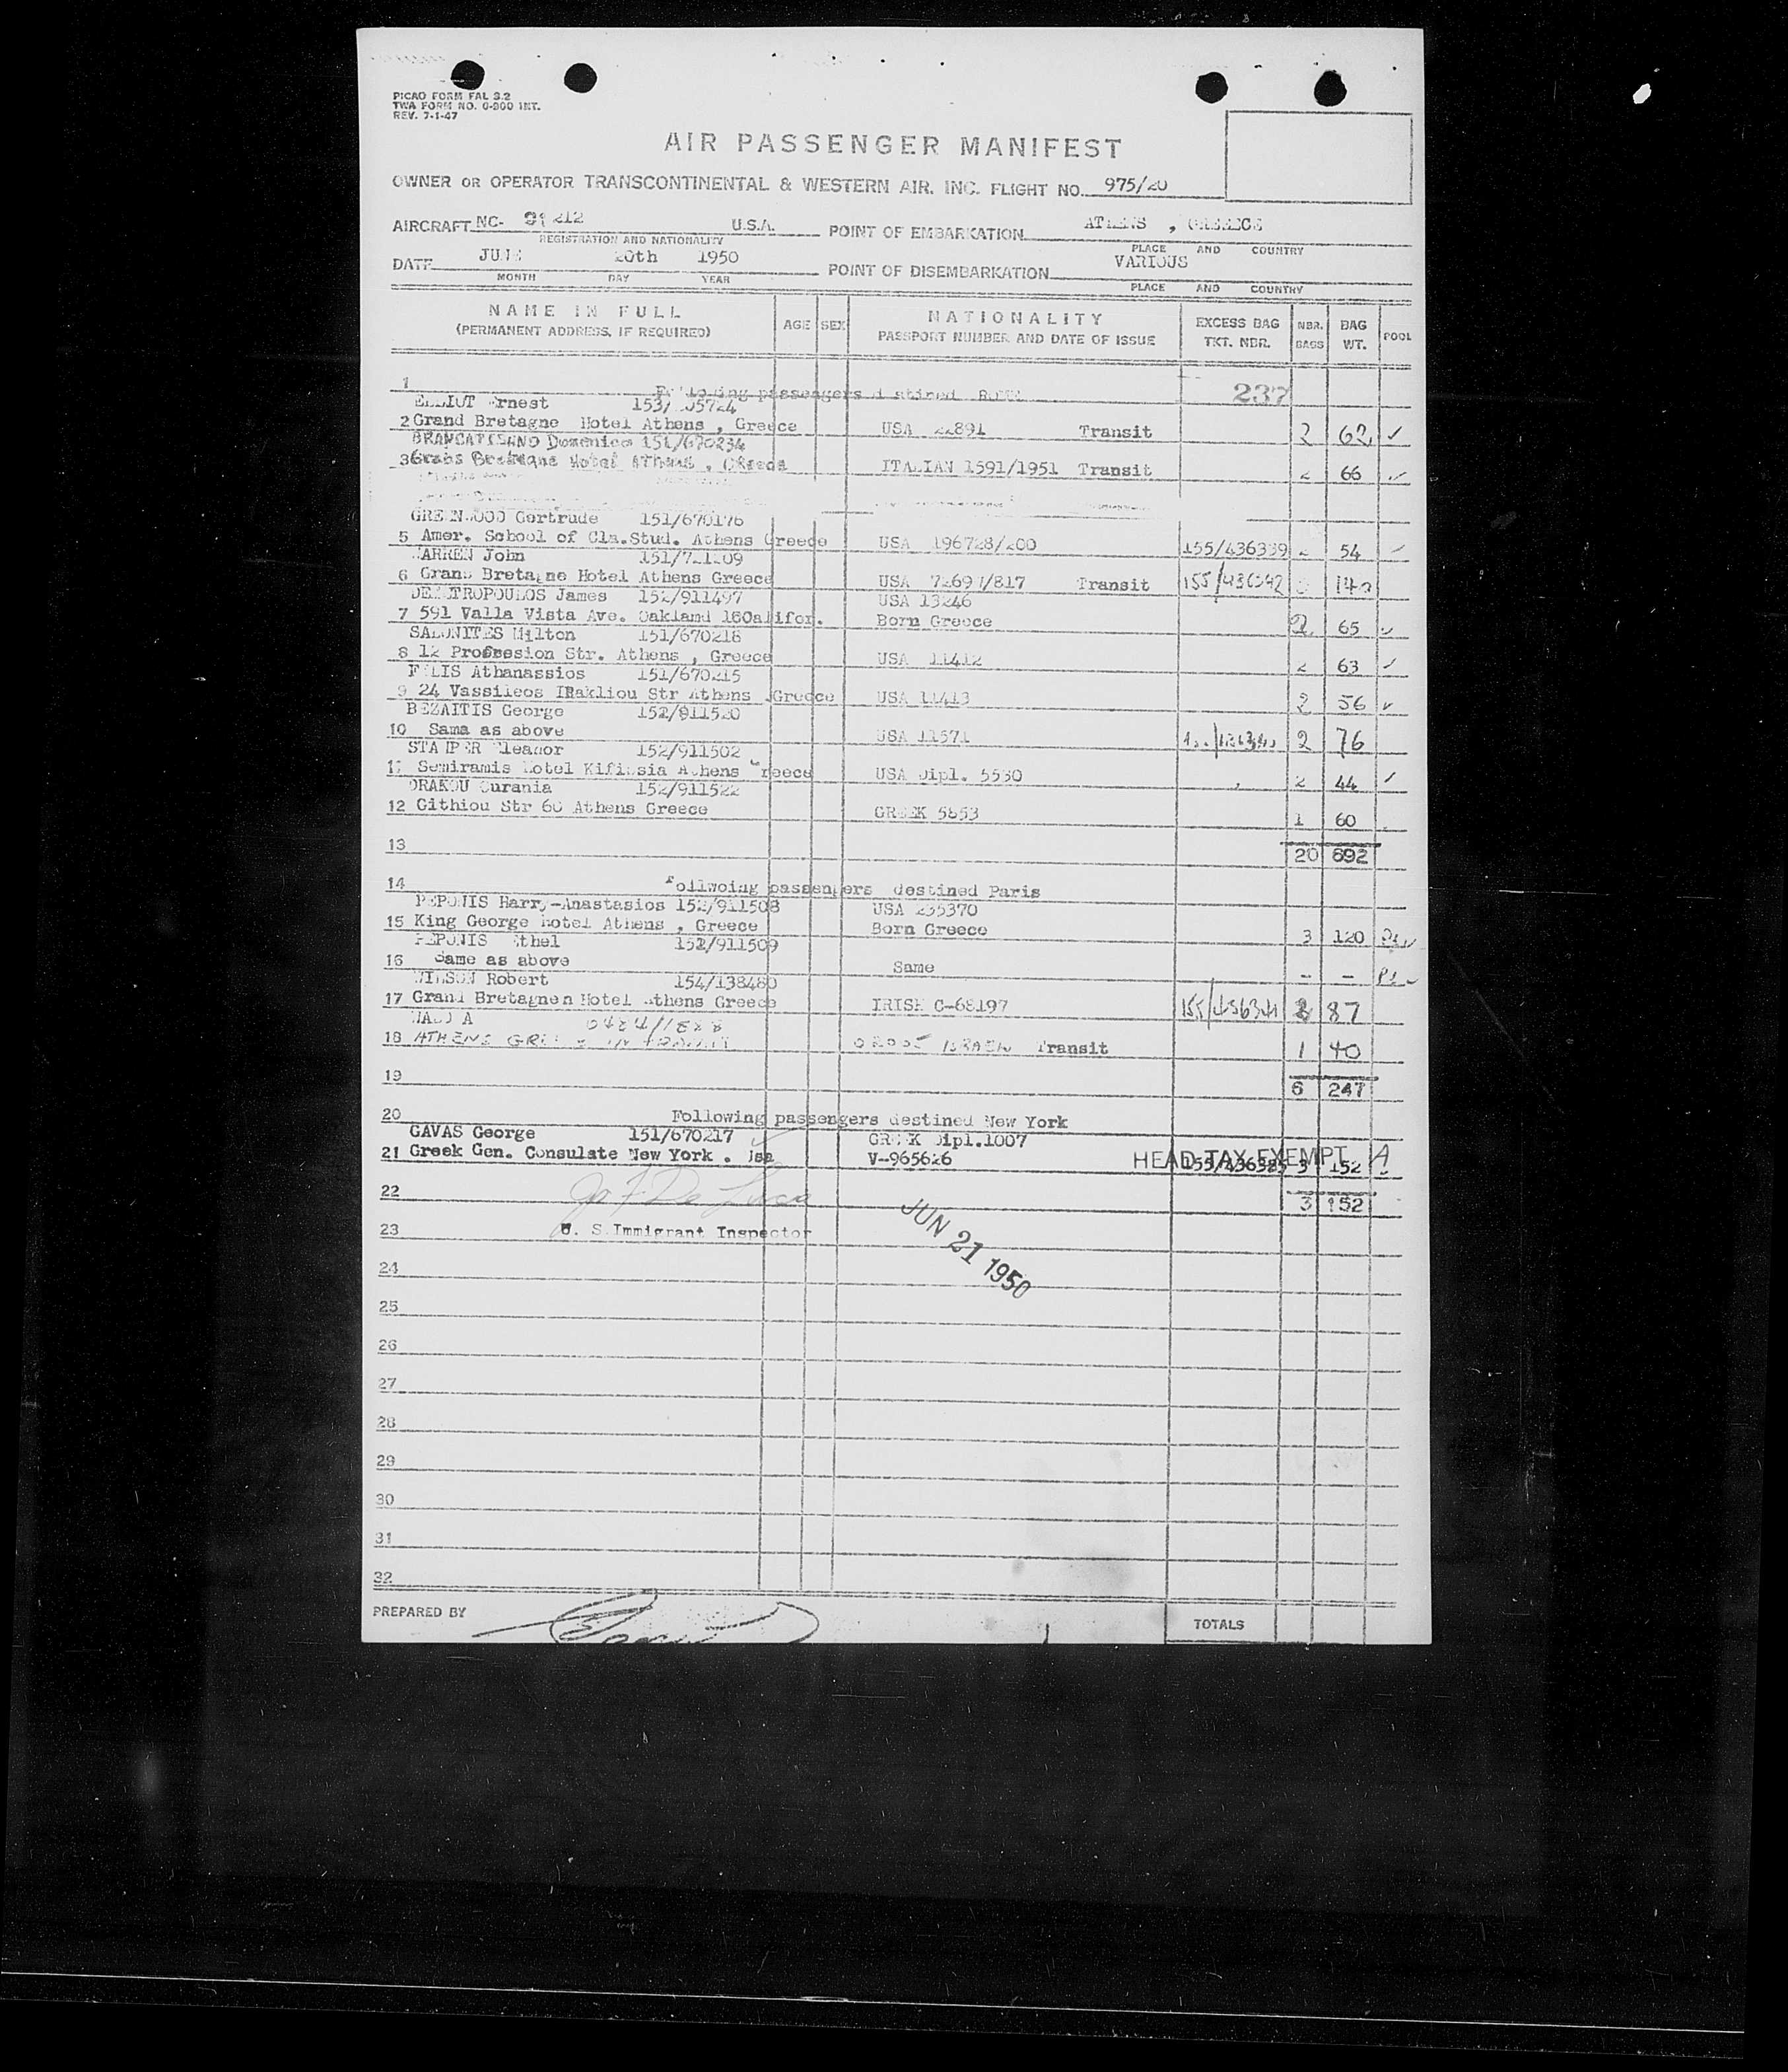 PICAO FORM FAL 3.2
TWA FORM NO. 0-800 INT.
REV. 7-1-47
AIR PASSENGER MANIFEST
OWNER OR OPERATOR TRANSCONTINENTAL & WESTERN AIR. INC. FLIGHT NO. 975/20
AIRCRAFT NC- 91212 U.S.A. POINT OF EMBARKATION ATHENS , GREECE
REGISTRATION AND NATIONALITY PLACE AND COUNTRY
DATE JUNE 20th 1950 POINT OF DISEMBARKATION VARIOUS
MONTH DAY YEAR PLACE AND COUNTRY
NAME IN FULL (PERMANENT ADDRESS, IF REQUIRED) AGE SEX NATIONALITY PASSPORT NUMBER AND DATE OF ISSUE EXCESS BAG TKT. NBR. NBR. BAGS BAG WT. POOL
1 Following passengers destined ROME 237
ELLIOT Ernest
2 Grand Bretagne Hotel Athens , Greece USA 22891 Transit 2 62
BRANCATISANO Domenico 151/670234
3 Hotel Athens , Greece ITALIAN 1591/1951 Transit 2 66
GREENWOOD Gertrude 151/670176
5 Amer. School of Cla.Stud. Athens Greece USA 196728/200 155/436339 2 54
WARREN John 151/721209
6 Grand Bretagne Hotel Athens Greece USA Transit 140
DEMETROPOULOS James 152/911497 USA 13246
7 591 Valla Vista Ave. Oakland Califor. Born Greece 2 65
SALONITES Milton 151/670218
8 12 Profession Str. Athens , Greece USA 11412 2 63
FILIS Athanassios 151/670215
9 24 Vassileos IRakliou Str Athens Greece USA 11413 2 56
BEZAITIS George 152/911520
10 Sama as above USA 11571 2 76
STAMPER Eleanor 152/911502
11 Semiramis Hotel Kifissia Athens Greece USA Dipl. 5530 2 44
DRAKOU Ourania 152/911522
12 Githiou Str 60 Athens Greece GREEK 5853 1 60
13 20 692
14 Follwoing passengers destined Paris
PEPONIS Harry-Anastasios 152/911508 USA 235370
15 King George Hotel Athens , Greece Born Greece 3 120
PEPONIS Ethel 152/911509
16 Same as above Same - -
WILSON Robert 154/138480
17 Grand Bretagnen Hotel Athens Greece IRISH C-68197 2 87
18 ATHENS Transit 1 40
19 6 247
20 Following passengers destined New York
GAVAS George 151/670217 GREEK Dipl.1007
21 Greek Gen. Consulate New York . Usa V-965626 HEAD TAX EXEMPT 155/436385 3 152
22 3 152
23 U. S.Immigrant Inspector
JUN 21 1950
24
25
26
27
28
29
30
31
32
PREPARED BY TOTALS